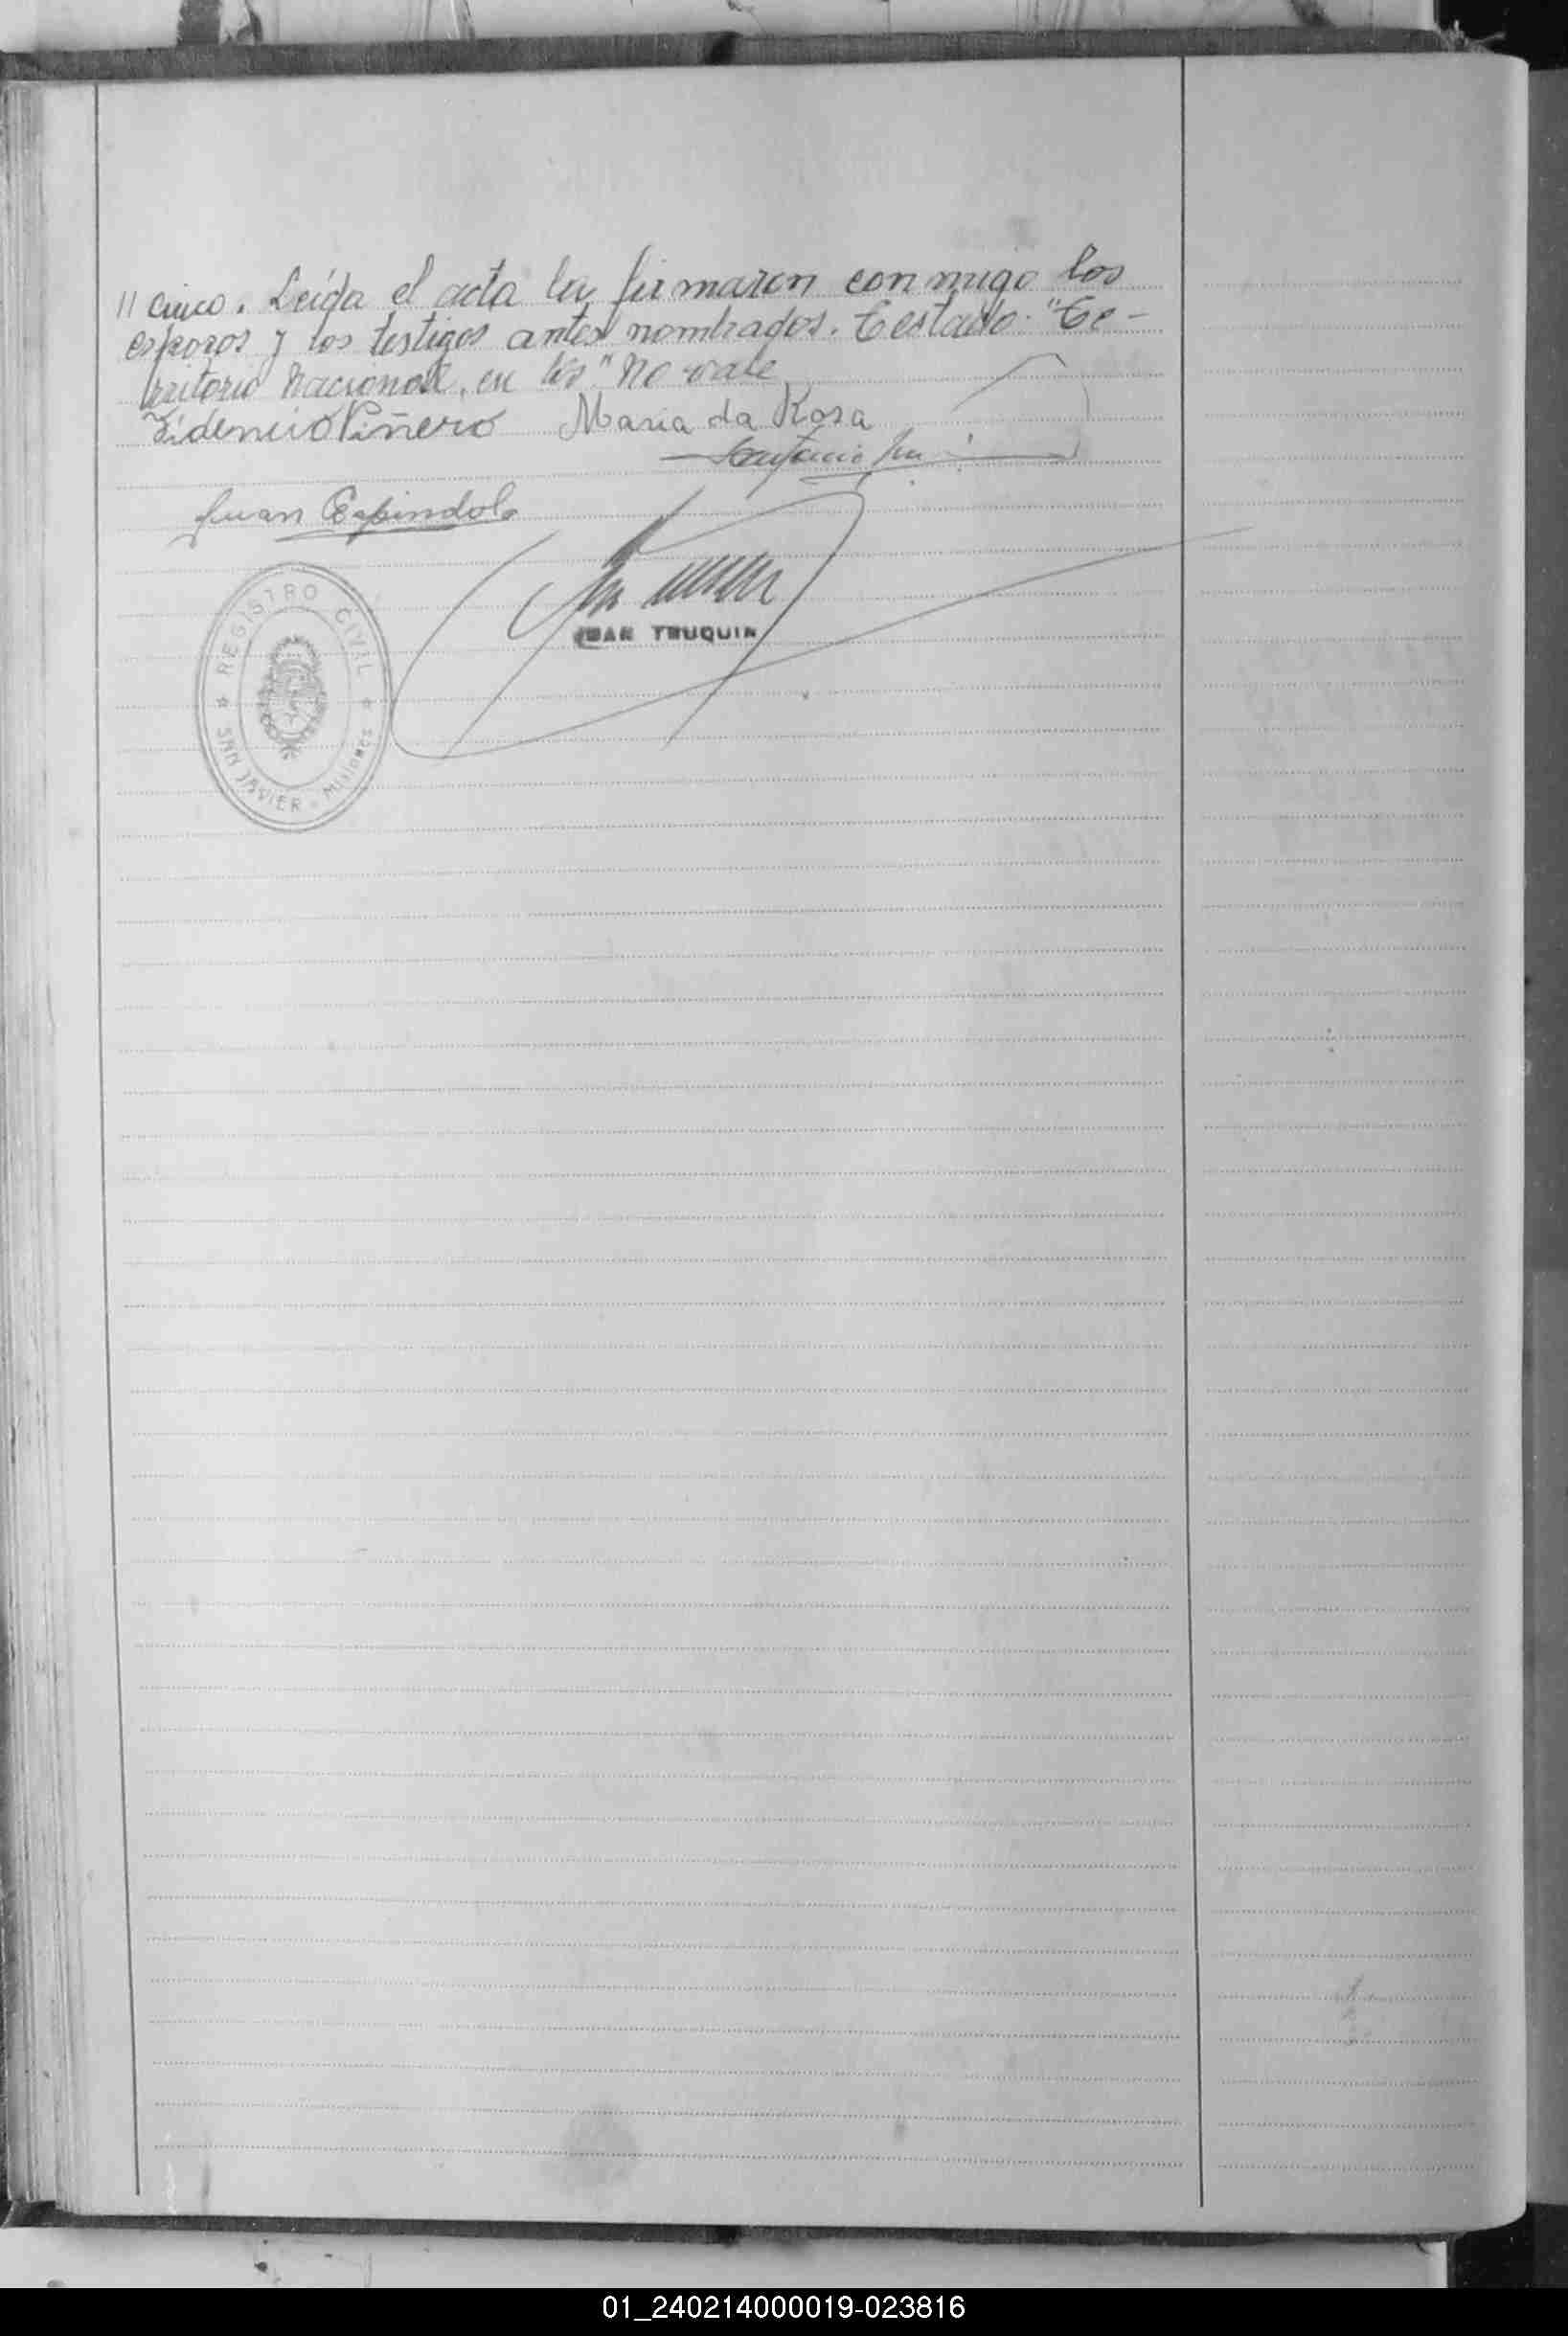 // cinco. Leída el acta la firmaron conmigo los
esposos y los testigos antes nombrados. Testado: "Te-
rritorio Nacional, en los" No vale
Fidencio Piñero María da Rosa
Juan Espindola
JUAN TRUQUIN
REGISTRO CIVIL
SAN JAVIER - Misiones
01_240214000019-023816